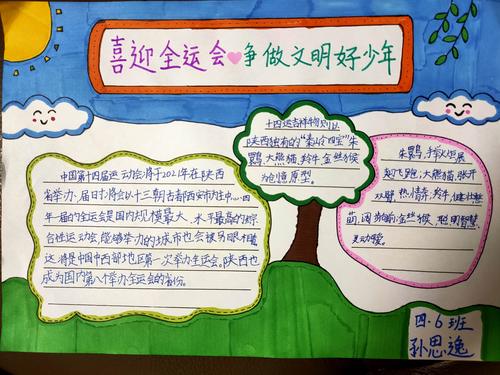 喜迎全运会争做文明好少年
中国第十四届运动会将于2021年在陕西
省举办,届时将会以十三朝古都西安市为主中心.四
年一届的全运会是国内规模最大、水平最高的综
合性运动会,能够举办的城市也会被另眼相看
这将是中国中西部地区第一次举办全运会。陕西也
成为国内第八个举办全运会的省份。
十四运吉祥物则以
陕西独有的“秦岭四宝”朱
鹮,大熊猫,羚牛,金丝猴
为创意原型。
朱鹮,手持火炬展
翅飞跑,大熊猫,张开
双臂,热情奔,羚牛,健壮憨
萌,阔步向前,金丝猴,聪明智慧,
灵动可爱。
四.6班
孙思逸